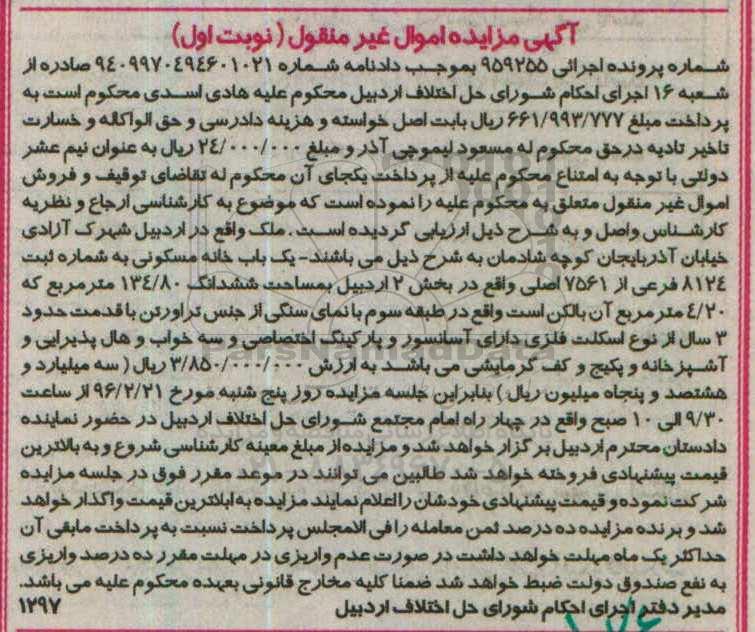 آگهی مزایده اموال غیر منقول ( نوبت اول)
شماره پرونده اجرائی ۹۵۹۲۵۵ بموجب دادنامه شماره ۹٤۰۹۹۷۰٤۹٤۶۰۱۰۲۱ صادره از
شعبه ۱۶ اجرای احکام شورای حل اختلاف اردبیل محکوم علیه هادی اسدی محکوم است به
پرداخت مبلغ ۶۶۱/۹۹۳/۷۷۷ ریال بابت اصل خواسته و هزینه دادرسی و حق الواکاله و خسارت
تاخیر تادیه در حق محکوم له مسعود لیموچی آذر و مبلغ ۲٤/۰۰۰/۰۰۰ ریال به عنوان نیم عشر
دولتی با توجه به امتناع محکوم علیه از پرداخت یکجای آن محکوم له تقاضای توقیف و فروش
اموال غیر منقول متعلق به محکوم علیه را نموده است که موضوع به کارشناسی ارجاع و نظریه
کارشناس واصل و به شرح ذیل ارزیابی گردیده است. ملک واقع در اردبیل شهرک آزادی
خیابان آذربایجان کوچه شادمان به شرح ذیل می باشند- یک باب خانه مسکونی به شماره ثبت
۸۱۲٤ فرعی از ۷۵۶۱ اصلی واقع در بخش ۲ اردبیل بمساحت ششدانگ ۱۳٤/۸۰ مترمربع که
٤/۲۰ متر مربع آن بالکن است واقع در طبقه سوم با نمای سنگی از جنس تراورتن با قدمت حدود
۳ سال از نوع اسکلت فلزی دارای آسانسور و پارکینگ اختصاصی و سه خواب و هال پذیرایی و
آشپزخانه و پکیج و کف گرمایشی می باشد به ارزش ۳/۸۵۰/۰۰۰/۰۰۰ ریال ( سه میلیارد و
هشتصد و پنجاه میلیون ریال ) بنابراین جلسه مزایده روز پنج شنبه مورخ ۹۶/۲/۲۱ از ساعت
۹/۳۰ الی ۱۰ صبح واقع در چهار راه امام مجتمع شورای حل اختلاف اردبیل در حضور نماینده
دادستان محترم اردبیل برگزار خواهد شد و مزایده از مبلغ معینه کارشناسی شروع و به بالاترین
قیمت پیشنهادی فروخته خواهد شد طالبین می توانند در موعد مقرر فوق در جلسه مزایده
شرکت نموده و قیمت پیشنهادی خودشان را اعلام نمایند مزایده به ابلاترین قیمت واگذار خواهد
شد و برنده مزایده ده درصد ثمن معامله را فی الامجلس پرداخت نسبت به پرداخت مابقی آن
حداکثر یک ماه مهلت خواهد داشت در صورت عدم واریزی در مهلت مقرر ده درصد واریزی
به نفع صندوق دولت ضبط خواهد شد ضمنا کلیه مخارج قانونی بعهده محکوم علیه می باشد.
مدیر دفتر اجرای احکام شورای حل اختلاف اردبیل ۱۲۹۷
ParsNamadData